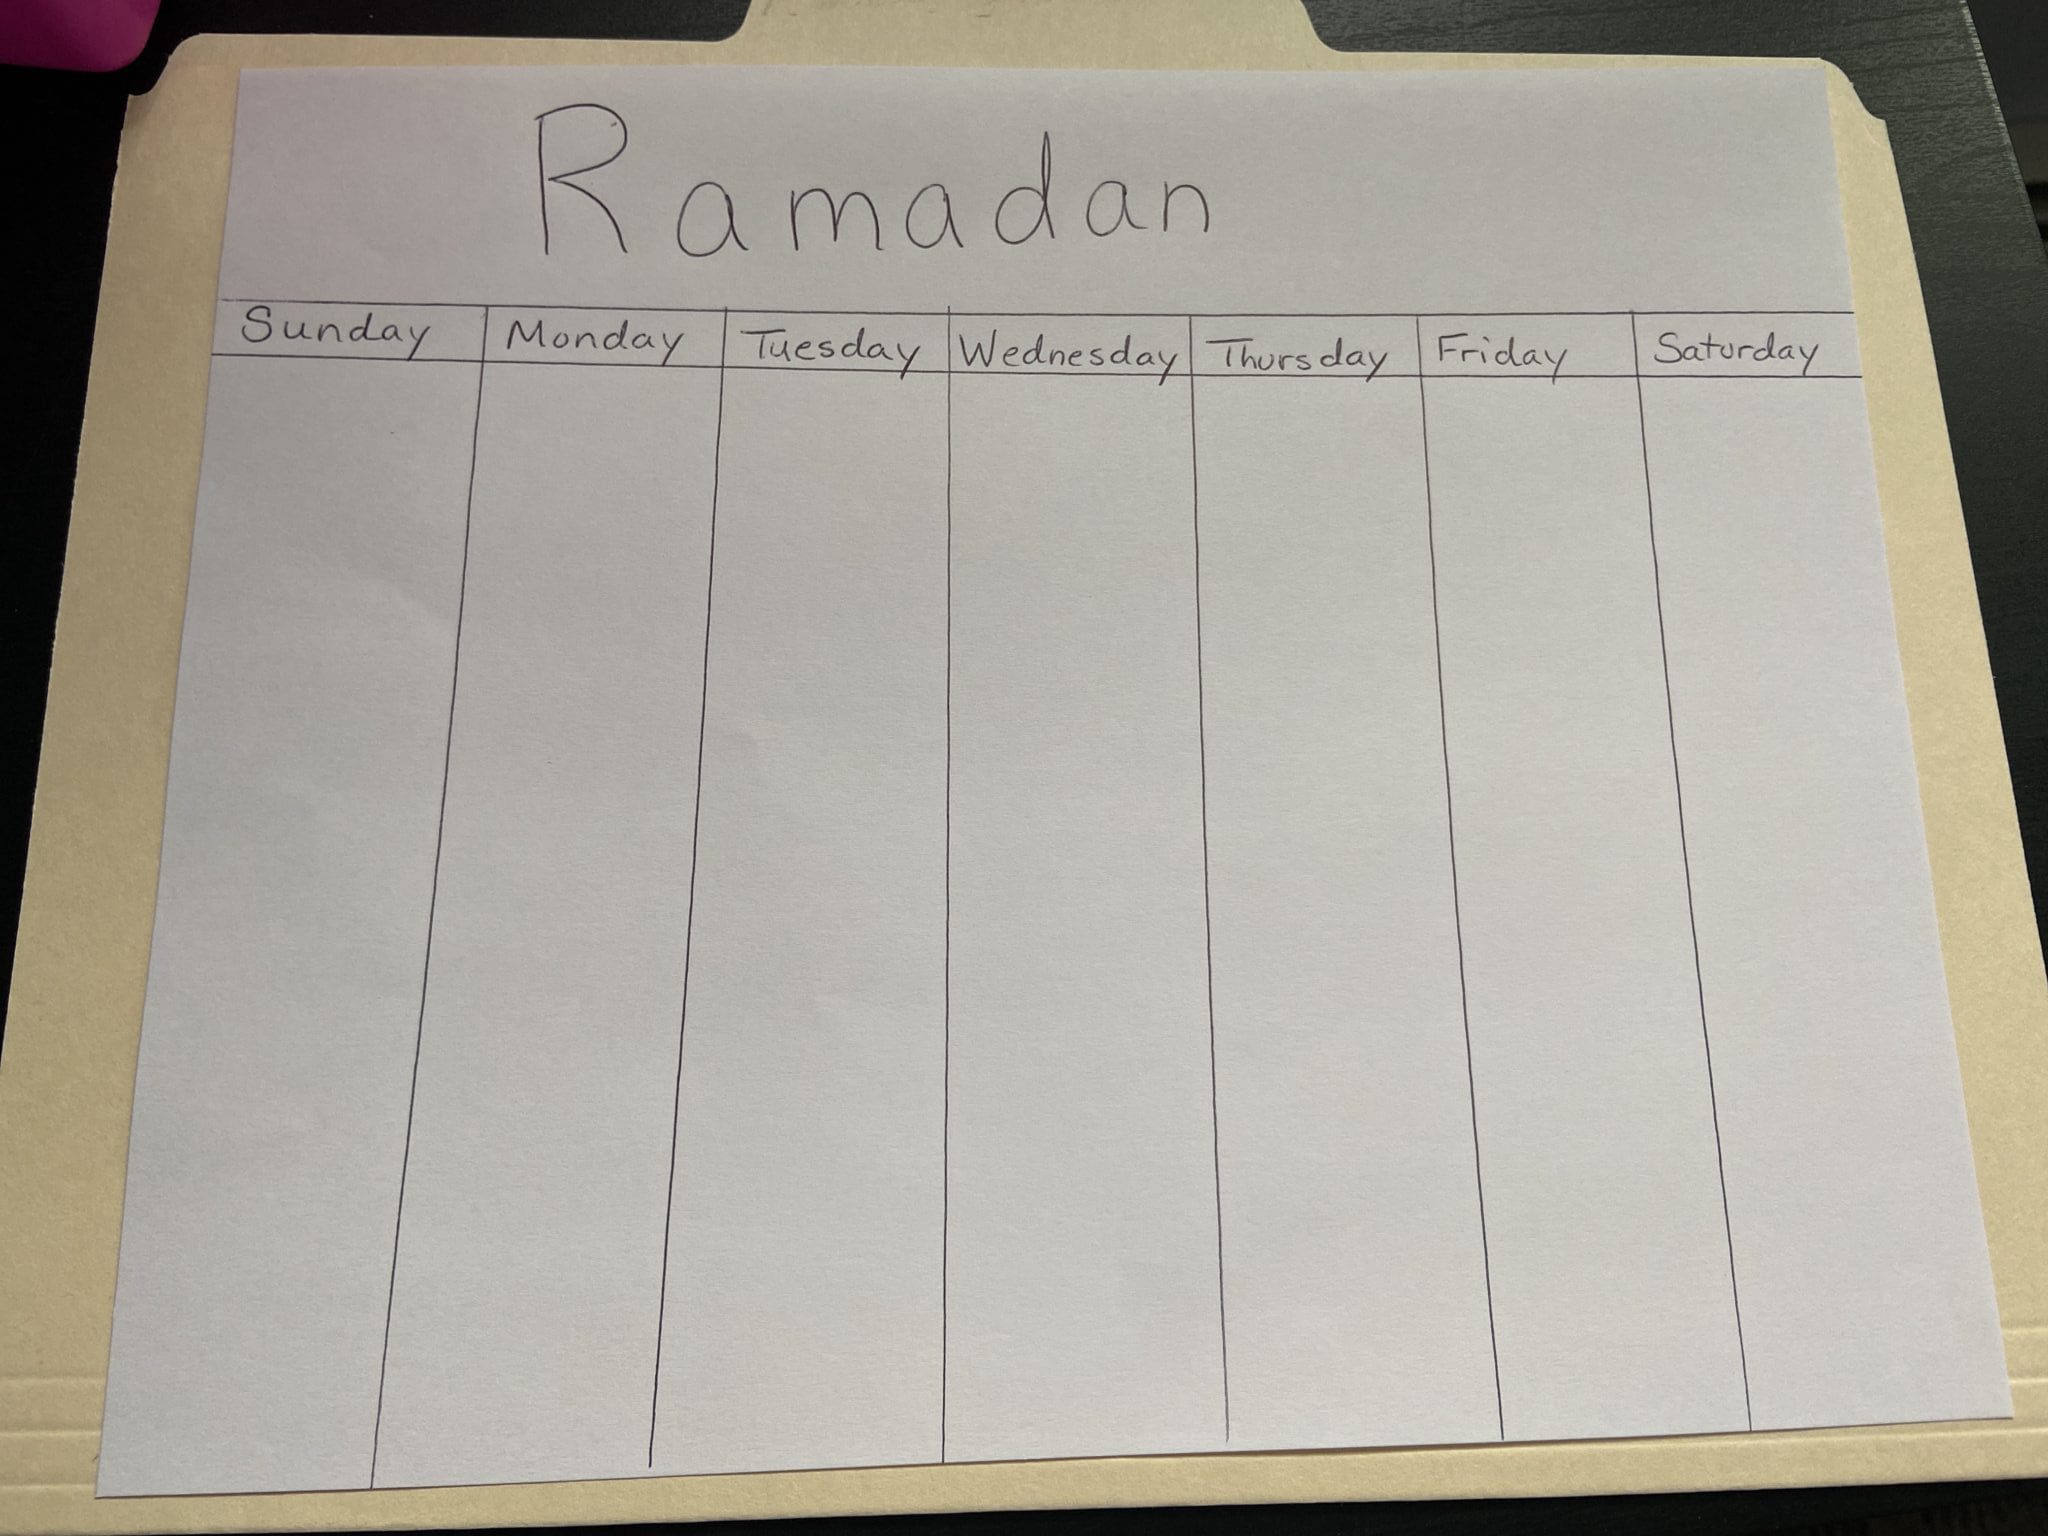 Ramadan
Sunday Monday Tuesday Wednesday Thursday Friday Saturday